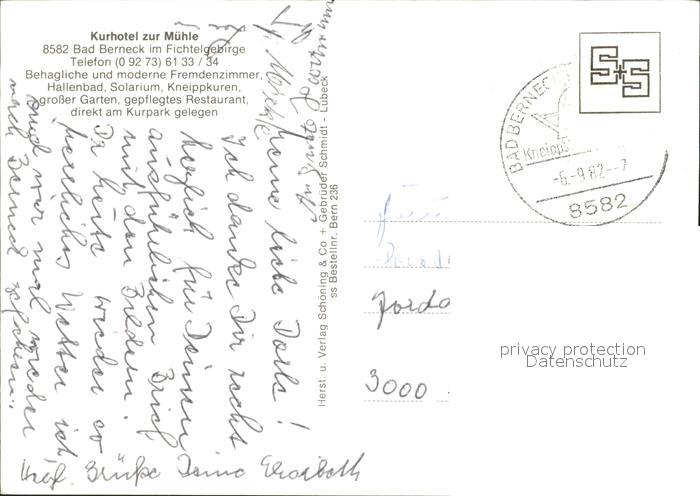 Kurhotel zur Mühle
8582 Bad Berneck im Fichtelgebirge
Telefon (0 92 73) 61 33 / 34
Behagliche und moderne Fremdenzimmer,
Hallenbad, Solarium, Kneippkuren,
großer Garten, gepflegtes Restaurant,
direkt am Kurpark gelegen
Meine liebe Dorle!
Ich danke Dir recht
herzlich für Deinen
ausführlichen Brief
mit den Bildern.
Da heute wieder so
herrliches Wetter ist
sind wir mal wieder
nach Berneck gefahren.
Herzl. Grüße Deine Elisabeth
Herst. u. Verlag Schöning & Co + Gebrüder Schmidt - Lübeck
ss Bestellnr. Bern 236
S+S
BAD BERNECK
Kneipp
-6.-9.82--7
8582
3000
privacy protection
Datenschutz